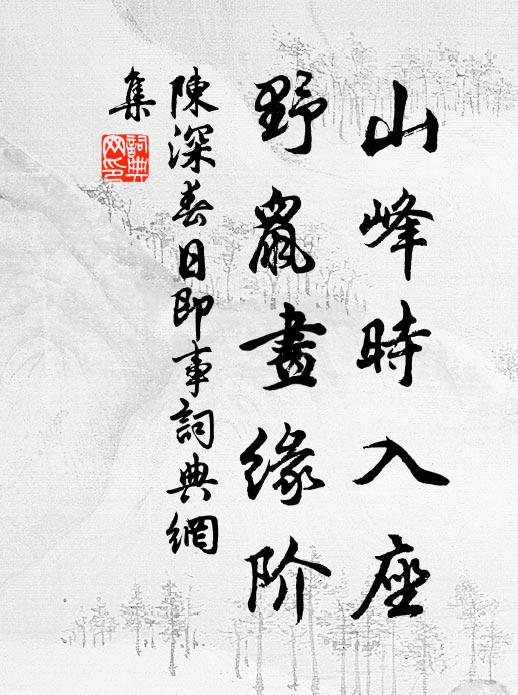 山峰時入座
野鼠晝緣阶
陳深春日即事詞典網
集
詞典
網印